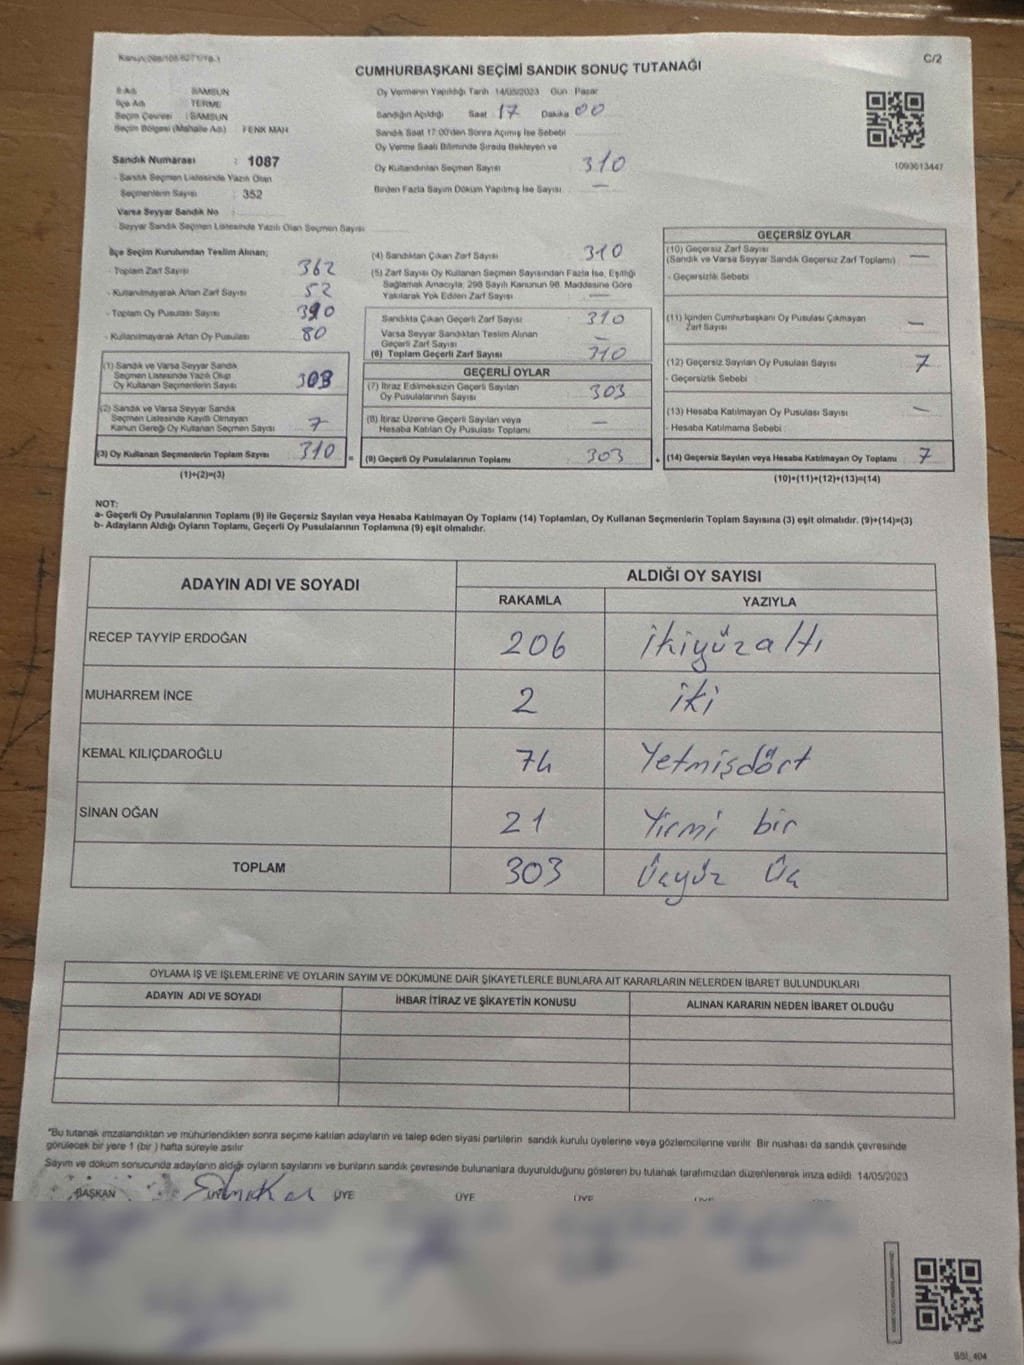 C/2
CUMHURBAŞKANI SEÇİMİ SANDIK SONUÇ TUTANAĞI
İl Adı : SAMSUN
İlçe Adı : TERME
Seçim Çevresi : SAMSUN
Seçim Bölgesi (Mahalle Adı) : FENK MAH
Sandık Numarası : 1087
- Sandık Seçmen Listesinde Yazılı Olan
Seçmenlerin Sayısı : 352
Varsa Seyyar Sandık No
- Seyyar Sandık Seçmen Listesinde Yazılı Olan Seçmen Sayısı
Oy Vermenin Yapıldığı Tarih 14/05/2023 Gün Pazar
Sandığın Açıldığı Saat 17 Dakika 00
Sandık Saat 17:00'den Sonra Açımış İse Sebebi
Oy Verme Saati Bitiminde Sırada Bekleyen ve
Oy Kullandırılan Seçmen Sayısı 310
Birden Fazla Sayım Döküm Yapılmış İse Sayısı —
1093613447
İlçe Seçim Kurulundan Teslim Alınan;
- Toplam Zarf Sayısı 362
- Kullanılmayarak Artan Zarf Sayısı 52
- Toplam Oy Pusulası Sayısı 390
- Kullanılmayarak Artan Oy Pusulası 80
(1) Sandık ve Varsa Seyyar Sandık
Seçmen Listesinde Yazılı Olup
Oy Kullanan Seçmenlerin Sayısı 303
(2) Sandık ve Varsa Seyyar Sandık
Seçmen Listesinde Kayıtlı Olmayan
Kanun Gereği Oy Kullanan Seçmen Sayısı 7
(3) Oy Kullanan Seçmenlerin Toplam Sayısı 310 =
(1)+(2)=(3)
(4) Sandıktan Çıkan Zarf Sayısı 310
(5) Zarf Sayısı Oy Kullanan Seçmen Sayısından Fazla İse, Eşitliği
Sağlamak Amacıyla, 298 Sayılı Kanunun 98. Maddesine Göre
Yakılarak Yok Edilen Zarf Sayısı —
Sandıkta Çıkan Geçerli Zarf Sayısı 310
Varsa Seyyar Sandıktan Teslim Alınan
Geçerli Zarf Sayısı —
(6) Toplam Geçerli Zarf Sayısı 310
GEÇERLİ OYLAR
(7) İtiraz Edilmeksizin Geçerli Sayılan
Oy Pusulalarının Sayısı 303
(8) İtiraz Üzerine Geçerli Sayılan veya
Hesaba Katılan Oy Pusulası Toplamı —
(9) Geçerli Oy Pusulalarının Toplamı 303 +
GEÇERSİZ OYLAR
(10) Geçersiz Zarf Sayısı —
(Sandık ve Varsa Seyyar Sandık Geçersiz Zarf Toplamı)
- Geçersizlik Sebebi
(11) İçinden Cumhurbaşkanı Oy Pusulası Çıkmayan
Zarf Sayısı —
(12) Geçersiz Sayılan Oy Pusulası Sayısı 7
- Geçersizlik Sebebi
(13) Hesaba Katılmayan Oy Pusulası Sayısı —
- Hesaba Katılmama Sebebi
(14) Geçersiz Sayılan veya Hesaba Katılmayan Oy Toplamı 7
(10)+(11)+(12)+(13)=(14)
NOT:
a- Geçerli Oy Pusulalarının Toplamı (9) ile Geçersiz Sayılan veya Hesaba Katılmayan Oy Toplamı (14) Toplamları, Oy Kullanan Seçmenlerin Toplam Sayısına (3) eşit olmalıdır. (9)+(14)=(3)
b- Adayların Aldığı Oyların Toplamı, Geçerli Oy Pusulalarının Toplamına (9) eşit olmalıdır.
ADAYIN ADI VE SOYADI ALDIĞI OY SAYISI
RAKAMLA YAZIYLA
RECEP TAYYİP ERDOĞAN 206 ikiyüzaltı
MUHARREM İNCE 2 iki
KEMAL KILIÇDAROĞLU 74 Yetmişdört
SİNAN OĞAN 21 Yirmi bir
TOPLAM 303 Üçyüz Üç
OYLAMA İŞ VE İŞLEMLERİNE VE OYLARIN SAYIM VE DÖKÜMÜNE DAİR ŞİKAYETLERLE BUNLARA AİT KARARLARIN NELERDEN İBARET BULUNDUKLARI
ADAYIN ADI VE SOYADI İHBAR İTİRAZ VE ŞİKAYETİN KONUSU ALINAN KARARIN NEDEN İBARET OLDUĞU
*Bu tutanak imzalandıktan ve mühürlendikten sonra seçime katılan adayların ve talep eden siyasi partilerin sandık kurulu üyelerine veya gözlemcilerine verilir. Bir nushası da sandık çevresinde
görülecek bir yere 1 (bir ) hafta süreyle asılır
Sayım ve döküm sonucunda adayların aldığı oyların sayılarını ve bunların sandık çevresinde bulunanlara duyurulduğunu gösteren bu tutanak tarafımızdan düzenlenerek imza edildi. 14/05/2023
BAŞKAN ÜYE ÜYE ÜYE